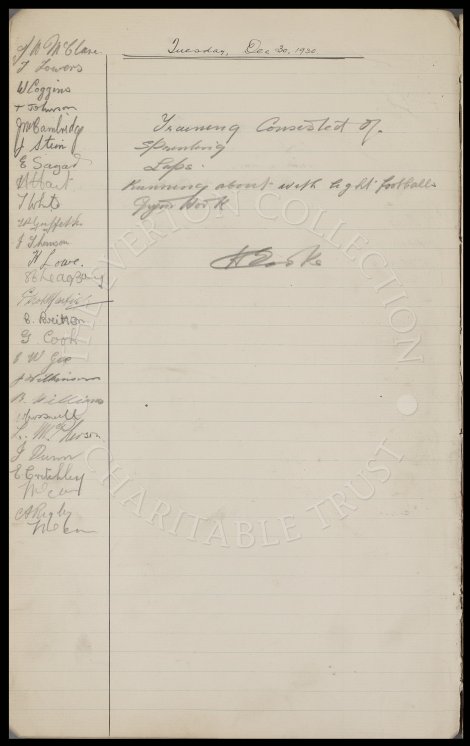 Tuesday, Dec 30, 1930
J W McClure
T Lowers
W Coggins
T Johnson
J McCambridge
J Stein
E Sagar
H Hart
T White
H Griffiths
J Thomson
H Lowe.
C. Britton
G. Cook
C W Gee
J Wilkinson
B. Williams
L. McPherson
J Dunn
E Critchley
A Rigby
Training Consisted of.
Sprinting
Laps.
Running about with light footballs
Gym Work
H Cooke
THE EVERTON COLLECTION
CHARITABLE TRUST